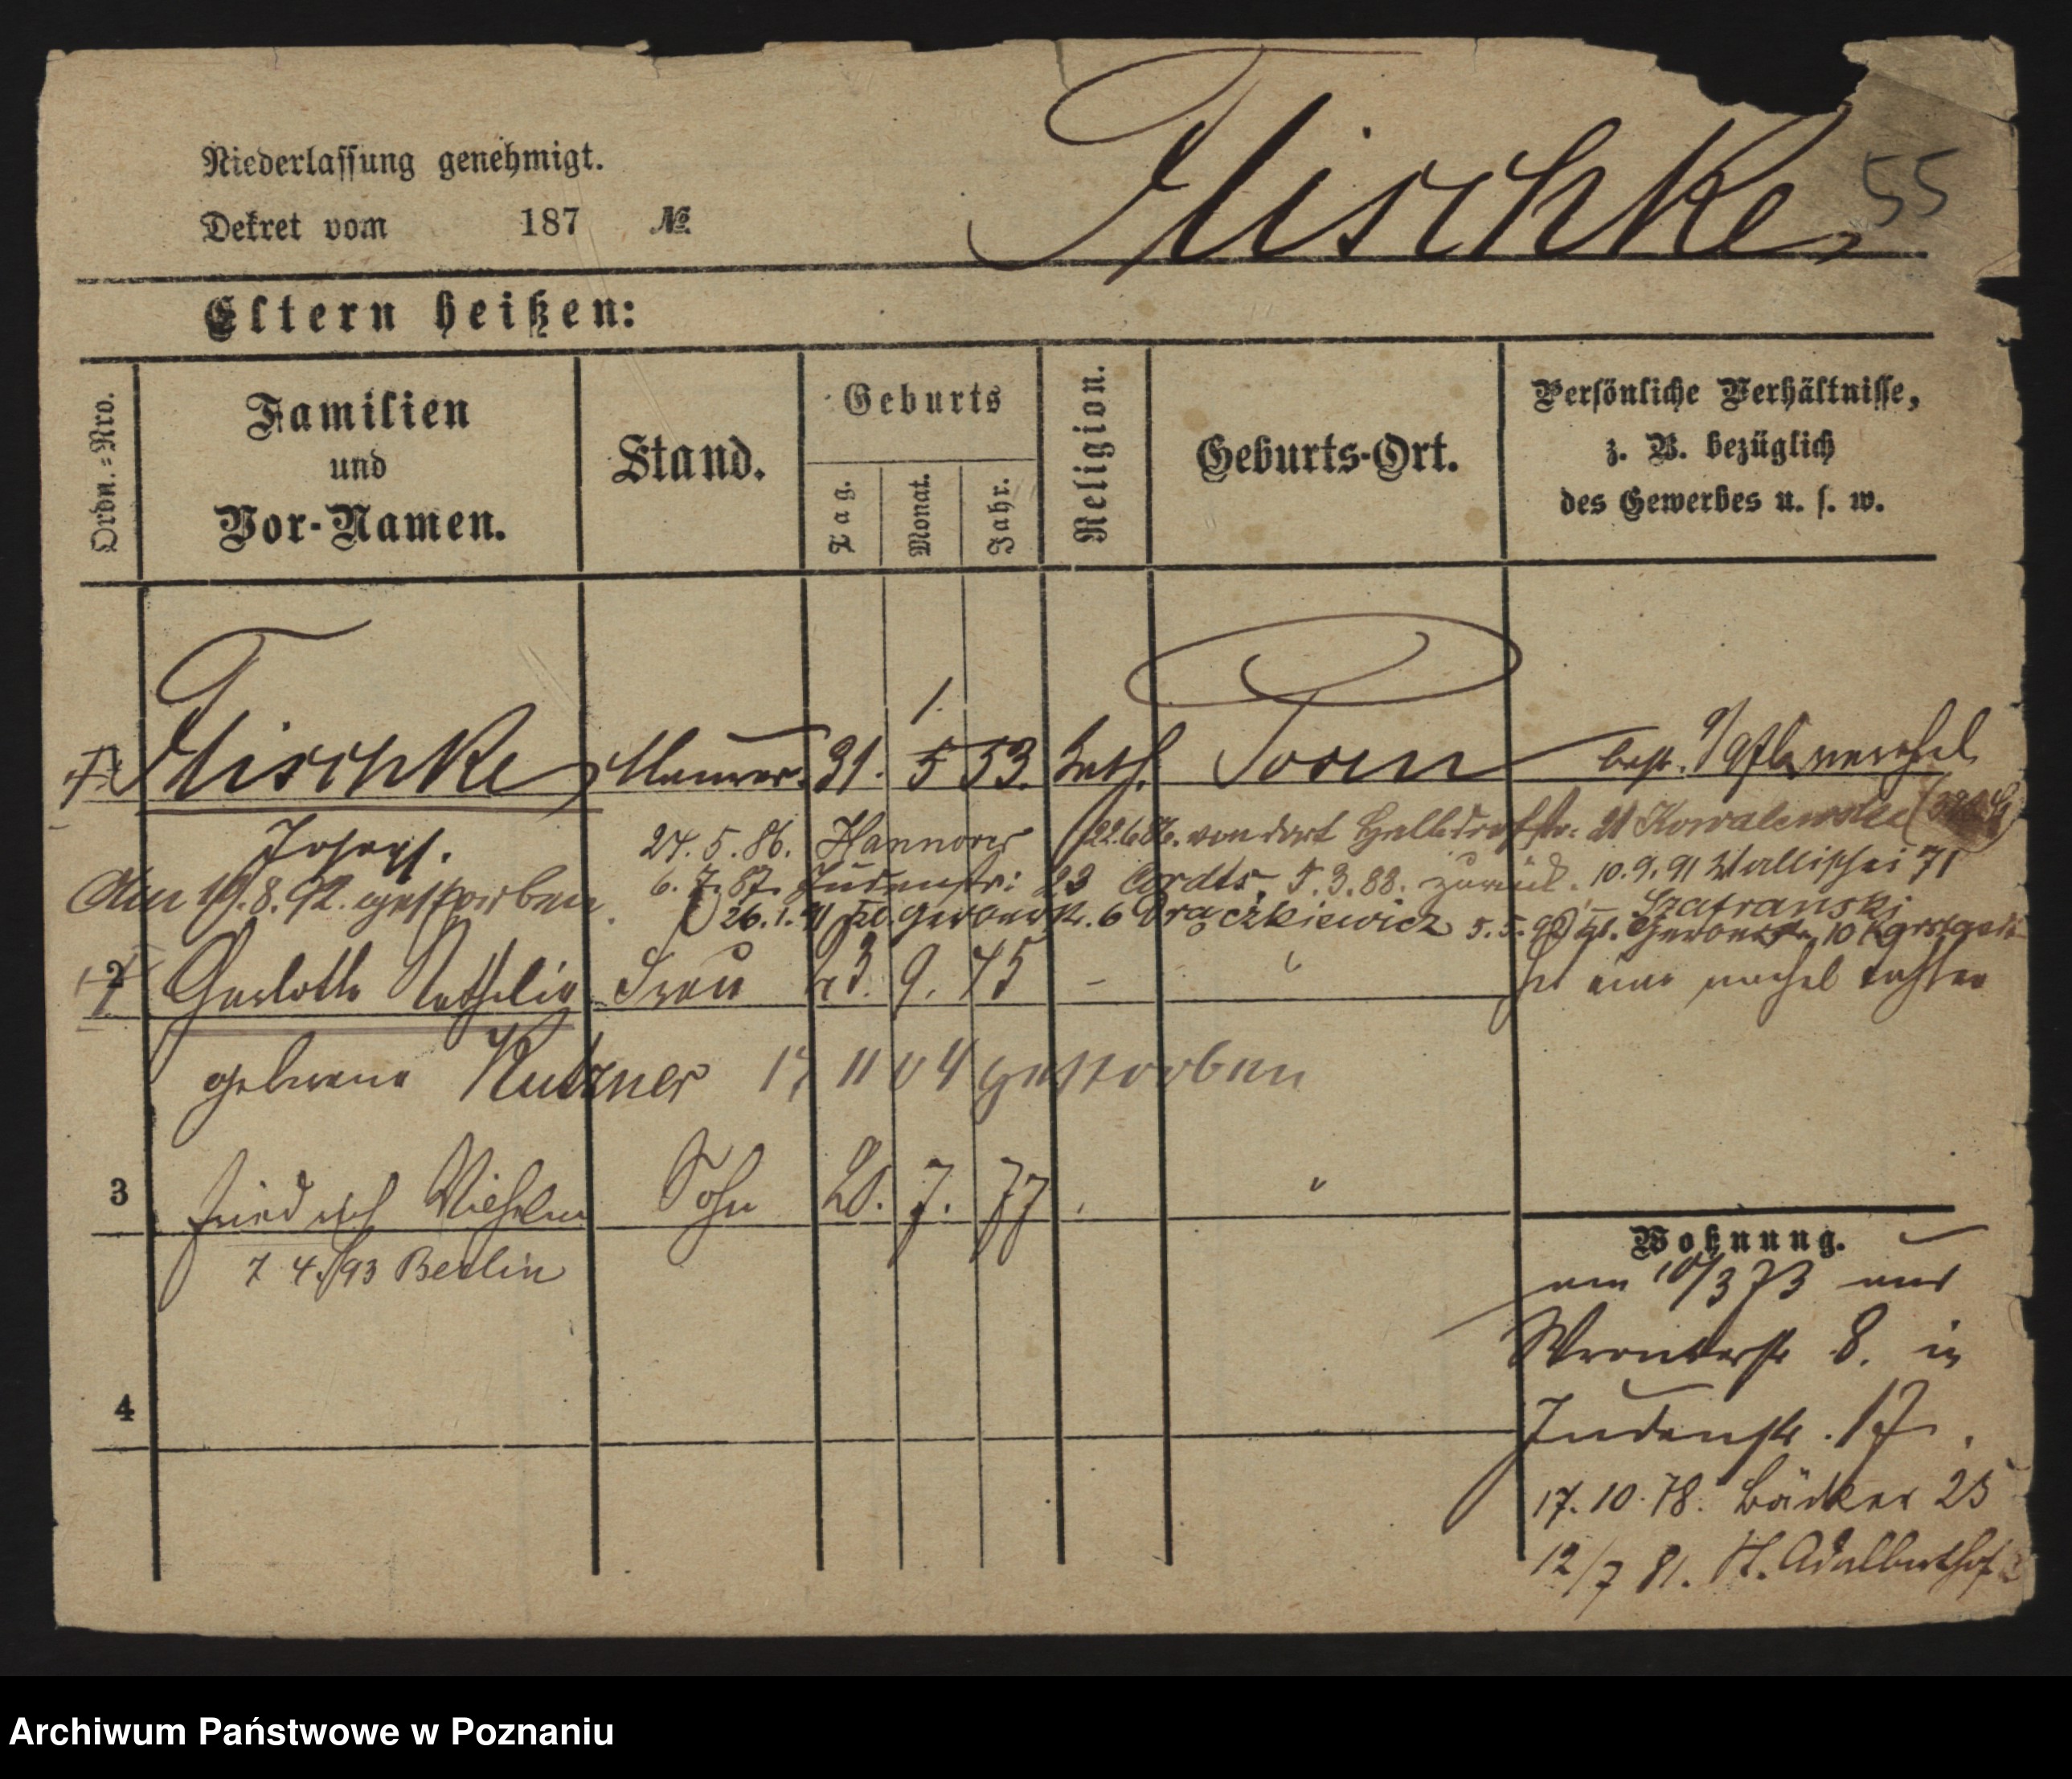 Niederlassung genehmigt.
Dekret vom 187 №
Flischke
55
Eltern heißen:
Ordn.=Nro.
Familien
und
Vor-Namen.
Stand.
Geburts
Tag.
Monat.
Jahr.
Religion.
Geburts-Ort.
Persönliche Verhältnisse,
z. B. bezüglich
des Gewerbes u. s. w.
1.
Flischke Maurer. 31. 5 53. kath. Posen
Joseph.
24. 5. 86. Hannover 22.6.86. von dort 21 Kowalewski
6. 7. 87. Judenstr: 23 Cordts. 5. 3. 88. zurück. 10. 9. 91 Wallischei 71
Szafranski
Am 19. 8. 92. gestorben.
26. 1. 91 Kl. Gerberstr. 6 Drączkiewicz 5. 5. 92 Kl. Gerberstr. 10
2 Frau 23. 9. 45 - "
geborene Kutzner 17 11 04 gestorben
3 Friedrich Wilhelm Sohn 20. 7. 77 "
7 4./93 Berlin
Wohnung.
am 10/3 73 aus
Wronkerstr 8. in
Judenstr. 17.
4
17. 10. 78. Bäcker 25
12/7 81. St. Adalberthof